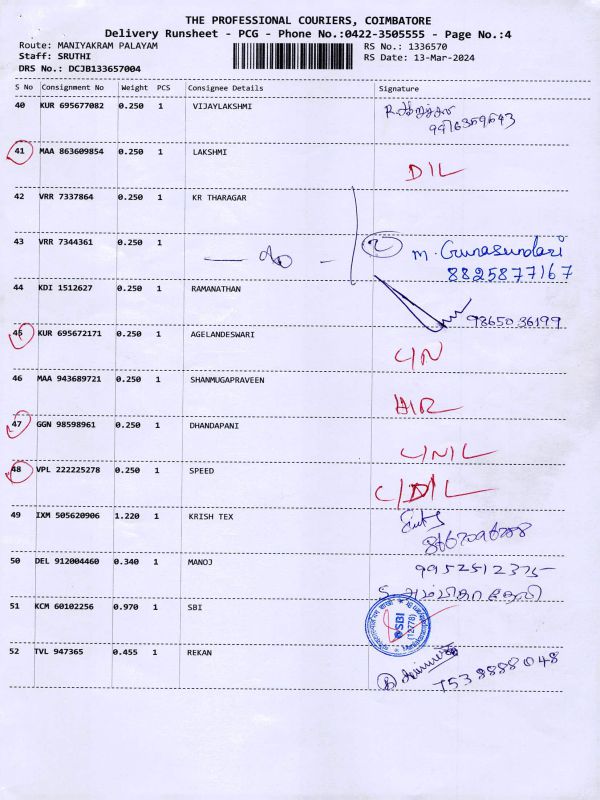 THE PROFESSIONAL COURIERS, COIMBATORE
Delivery Runsheet - PCG - Phone No.:0422-3505555 - Page No.:4
Route: MANIYAKRAM PALAYAM RS No.: 1336570
Staff: SRUTHI RS Date: 13-Mar-2024
DRS No.: DCJB133657004
S No Consignment No Weight PCS Consignee Details Signature
40 KUR 695677082 0.250 1 VIJAYLAKSHMI
9976359643
41 MAA 863609854 0.250 1 LAKSHMI
D/L
42 VRR 7337864 0.250 1 KR THARAGAR
43 VRR 7344361 0.250 1 2 M. Gunasundari
8825877167
44 KDI 1512627 0.250 1 RAMANATHAN
9865036199
45 KUR 695672171 0.250 1 AGELANDESWARI
46 MAA 943689721 0.250 1 SHANMUGAPRAVEEN
47 GGN 98598961 0.250 1 DHANDAPANI
48 VPL 222225278 0.250 1 SPEED
49 IXM 505620906 1.220 1 KRISH TEX
50 DEL 912004460 0.340 1 MANOJ 9952512375
51 KCM 60102256 0.970 1 SBI
SBI
(12778)
52 TVL 947365 0.455 1 REKAN
7538888048